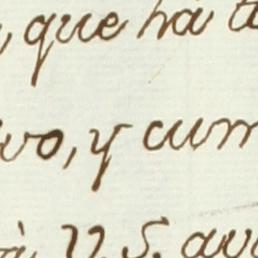 , que ha t
ivo, y cum
à V. S. avi